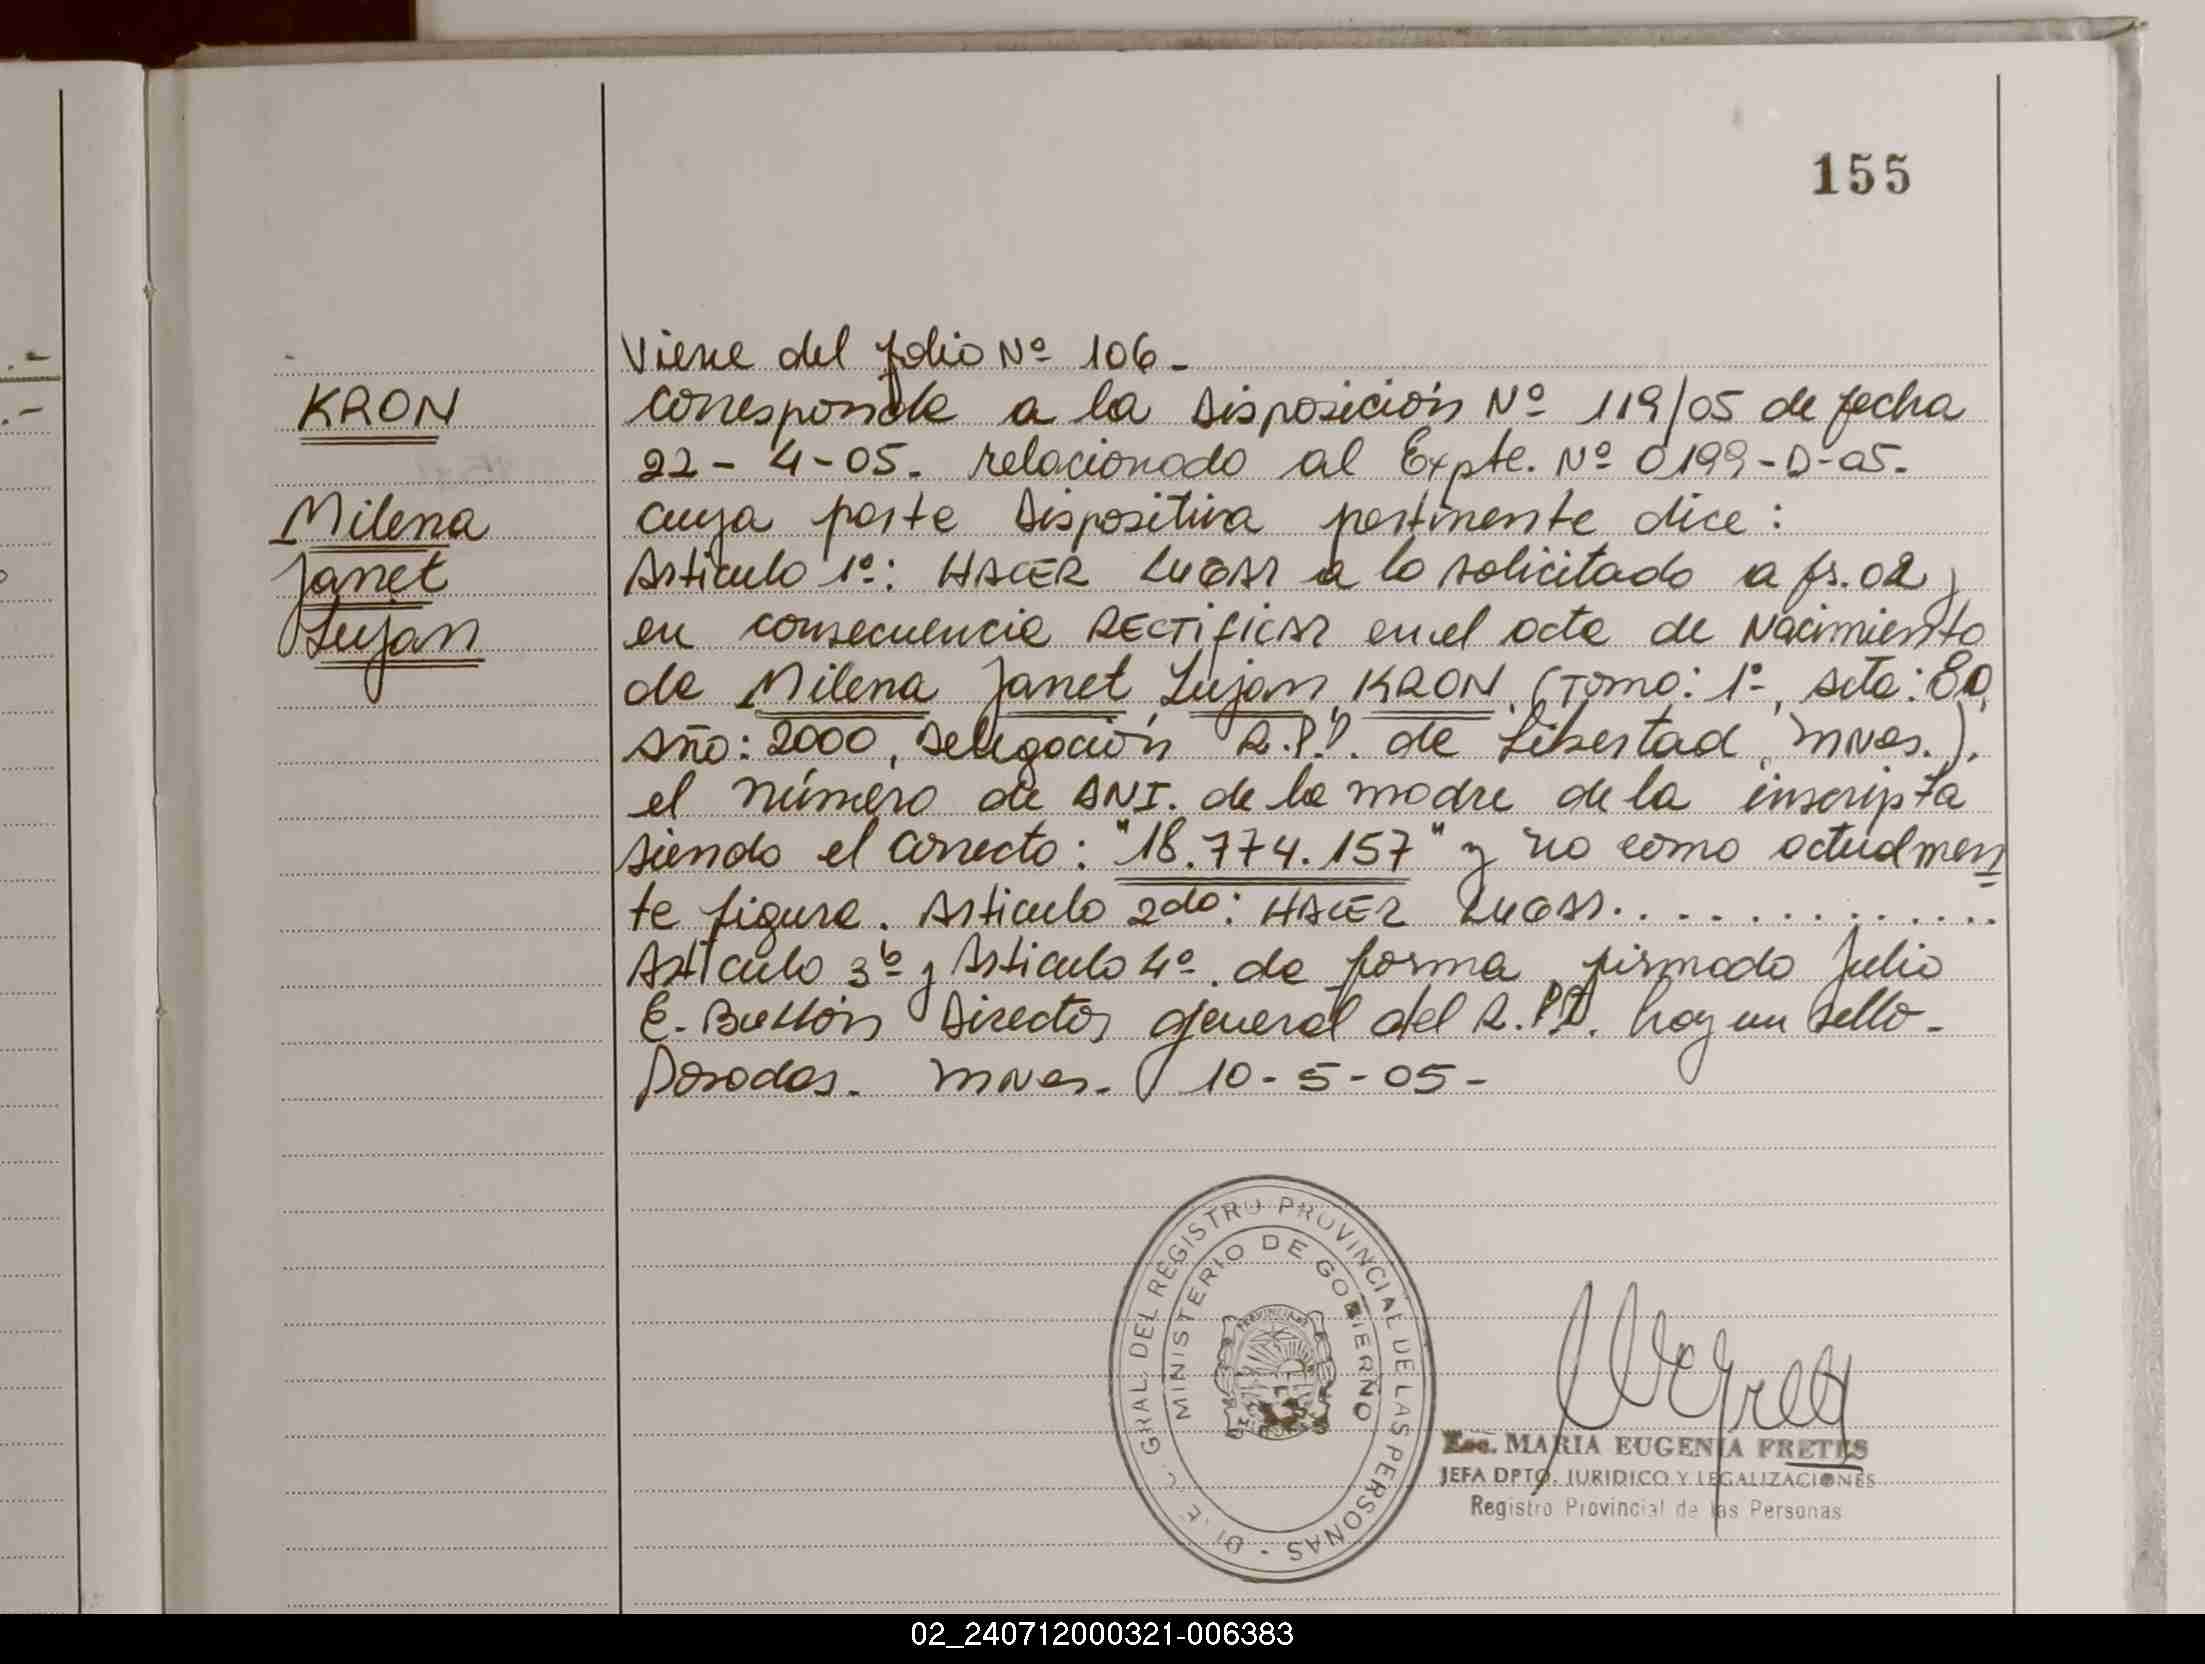 155
Viene del folio Nº 106-
KRON
Corresponde a la Disposición Nº 119/05 de fecha
22-4-05. relacionado al Expte. Nº 0199-D-05.
Milena
cuya parte Dispositiva pertinente dice:
Janet
Articulo 1º: HACER LUGAR a lo solicitado a fs. 02 y
Lujan
en consecuencia RECTIFICAR en el acta de Nacimiento
de Milena Janet Lujan KRON (Tomo: 1º, Acta: 80,
Año: 2000, Delegación R.P.P. de Libertad, Mnes.).
el número de DNI. de la madre de la inscripta
siendo el correcto: "18.774.157" y no como actualmen
te figura. Articulo 2do: HACER LUGAR..............
Artículo 3º y Articulo 4º. de forma firmado Julio
E. Director general del R.P.P. hay un sello-
Posadas. Mnes. 10-5-05-
GRAL. DEL REGISTRO PROVINCIAL DE LAS PERSONAS -
MINISTERIO DE GOBIERNO
Esc. MARIA EUGENIA FRETES
JEFA DPTO. JURIDICO Y LEGALIZACIONES
Registro Provincial de las Personas
02_240712000321-006383